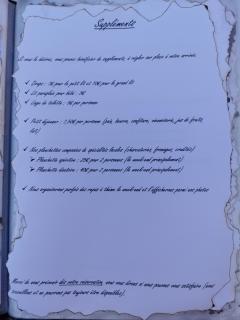 Suppléments
Si vous le désirez, vous pouvez bénéficier de suppléments, à régler sur place à votre arrivée.
✓ Draps : 7€ pour le petit lit et 10€ pour le grand lit
✓ Lit parapluie pour bébé : 5€
✓ Linge de toilette : 5€ par personne
✓ Petit déjeuner : 7,50€ par personne (pain, beurre, confiture, viennoiserie, jus de fruits,
lait)
✓ Nos planchettes composées de spécialités locales (charcuteries, fromages, crudités)
➤ Planchette : 25€ pour 2 personnes (le week-end principalement)
➤ Planchette : 40€ pour 2 personnes (le week-end principalement)
✓ Nous organiserons parfois des repas à thème le week-end et l'afficherons parmi nos photos
Merci de nous prévenir dès votre réservation, nous vous dirons si nous pouvons vous satisfaire (nous
travaillons et ne pourrons pas toujours être disponibles).